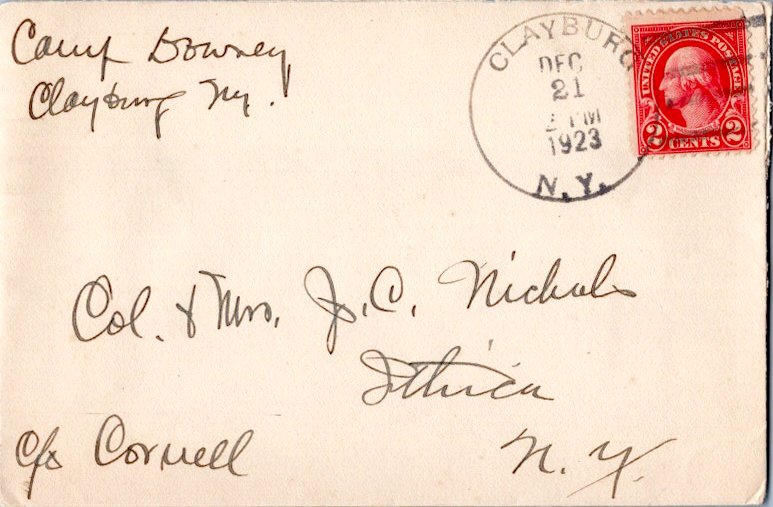 Camp Downey
Clayburg Ny.
CLAYBURG
DEC
21
PM
1923
N.Y.
UNITED STATES POSTAGE
2 CENTS 2
Col. & Mrs. J. C. Nichols
Ithica
c/o Cornell
N. Y.